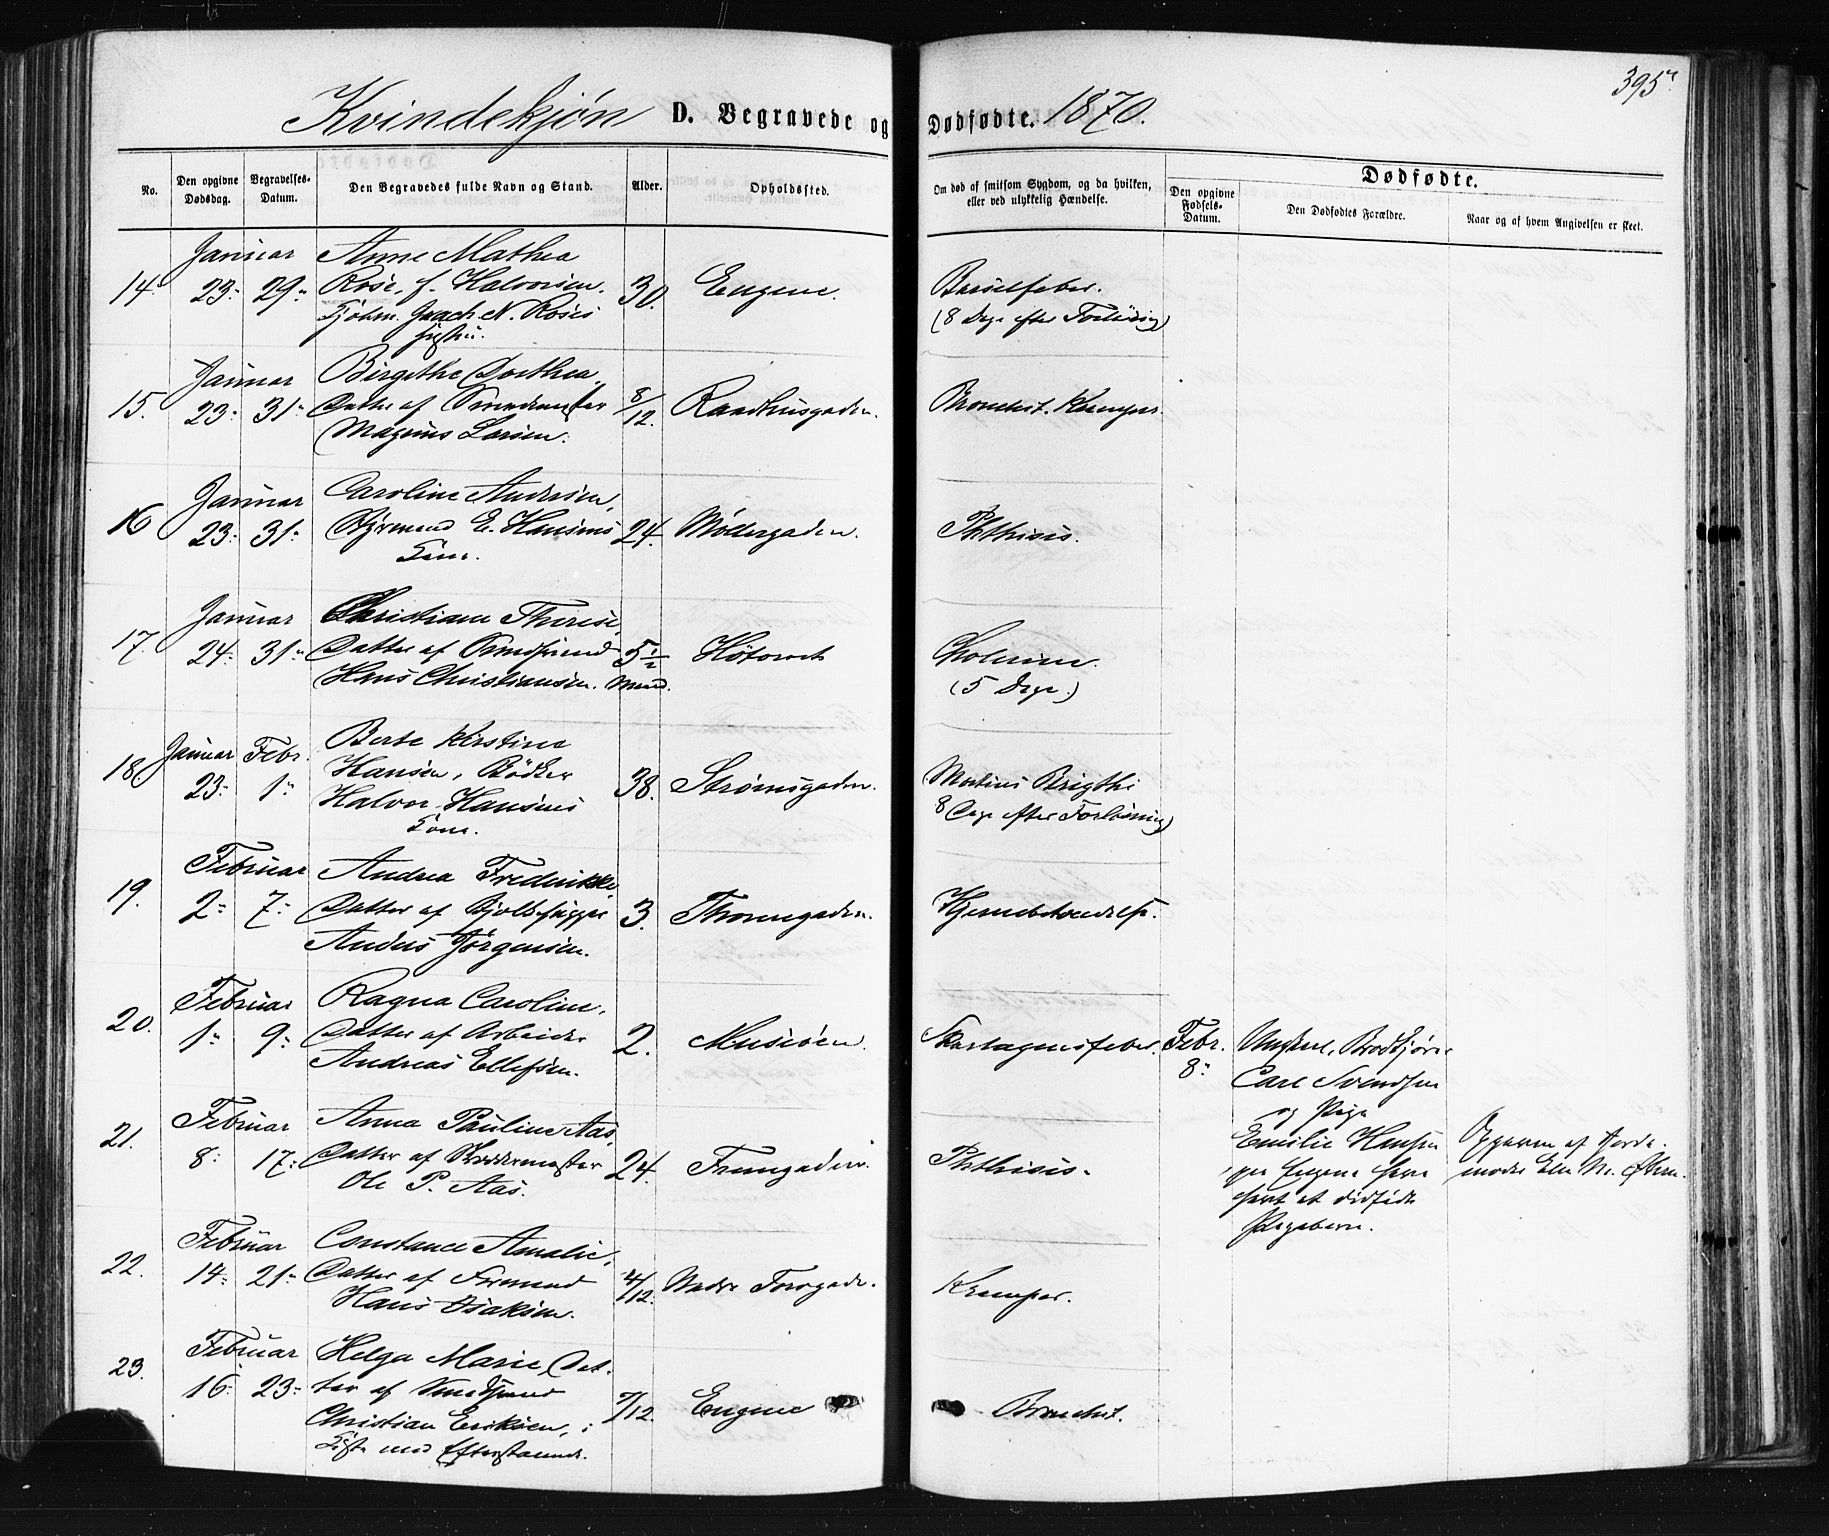 395a
Kvindekjøn D. Begravede og Dødfødte. 1870.
No.
Den opgivne Dødsdag.
Begravelses-Datum.
Den Begravedes fulde Navn og Stand.
Alder.
Opholdssted.
Om død af smitsom Sygdom, og da hvilken, eller ved ulykkelig Hændelse.
Dødfødte.
Den opgivne Fødsels-Datum.
Den Dødfødtes Forældre.
Naar og af hvem Angivelsen er skeet.
Januar Anne Mathea
14. 23. 29. Rose, f. Halvorsen. 30. Engene. Barselfeber.
N. Roses (8 Dage efter Forløsning)
Hustru.
Januar Birgithe Dorthea,
15. 23. 31. Datter af Smedmester 8/12. Raadhusgaden. Bronchit. Kramper.
Magnus Larsen.
Januar Caroline Andersen,
16 23. 31. Fyrmand E. Hansens 24. Møllergaden. Phthisis.
Kone.
Januar Christiane Therese,
17. 24. 31. Datter af Smedsvend 5 1/2 Høtorvet Cholerine.
Hans Christiansen. Mnd. (5 Dage.)
Januar Febr. Berte Kirstine
18. 23. 1. Hansen, Bødker 38. Strømsgaden. Morbus Brigthi
Halvor Hansens 8 Dage efter Forløsning)
Kone.
Februar Andrea Fredrikke,
19. 2. 7. Datter af 3. Thornegaden. Hjernebetændelse.
Anders Jørgensen.
Februar Ragna Caroline,
20. 1. 9. Datter af Arbeider 2. Musiøen. Skarlagensfeber. Febr. Ungkarl,
Andreas Ellefsen. 8. Carl Svendsen
og Pige
Februar Anna Pauline Aas, Emilie Hansen Opgaven af Jorde-
21. 8. 17. Datter af 24. Tverrgaden. Phthisis. paa Engene have moder
Ole P. Aas. havt et dødfødt
Pigebarn.
Februar Constance Amalie,
22. 14. 21. Datter af Formand 4/12. Nedre Torvgade. Kramper.
Hans Isaksen.
Februar Helga Marie Dat-
23. 16. 23. ter af Smedsvend 7/12. Engene Bronchit.
Christian Eriksen, i
Kiste med Efterstaaende.